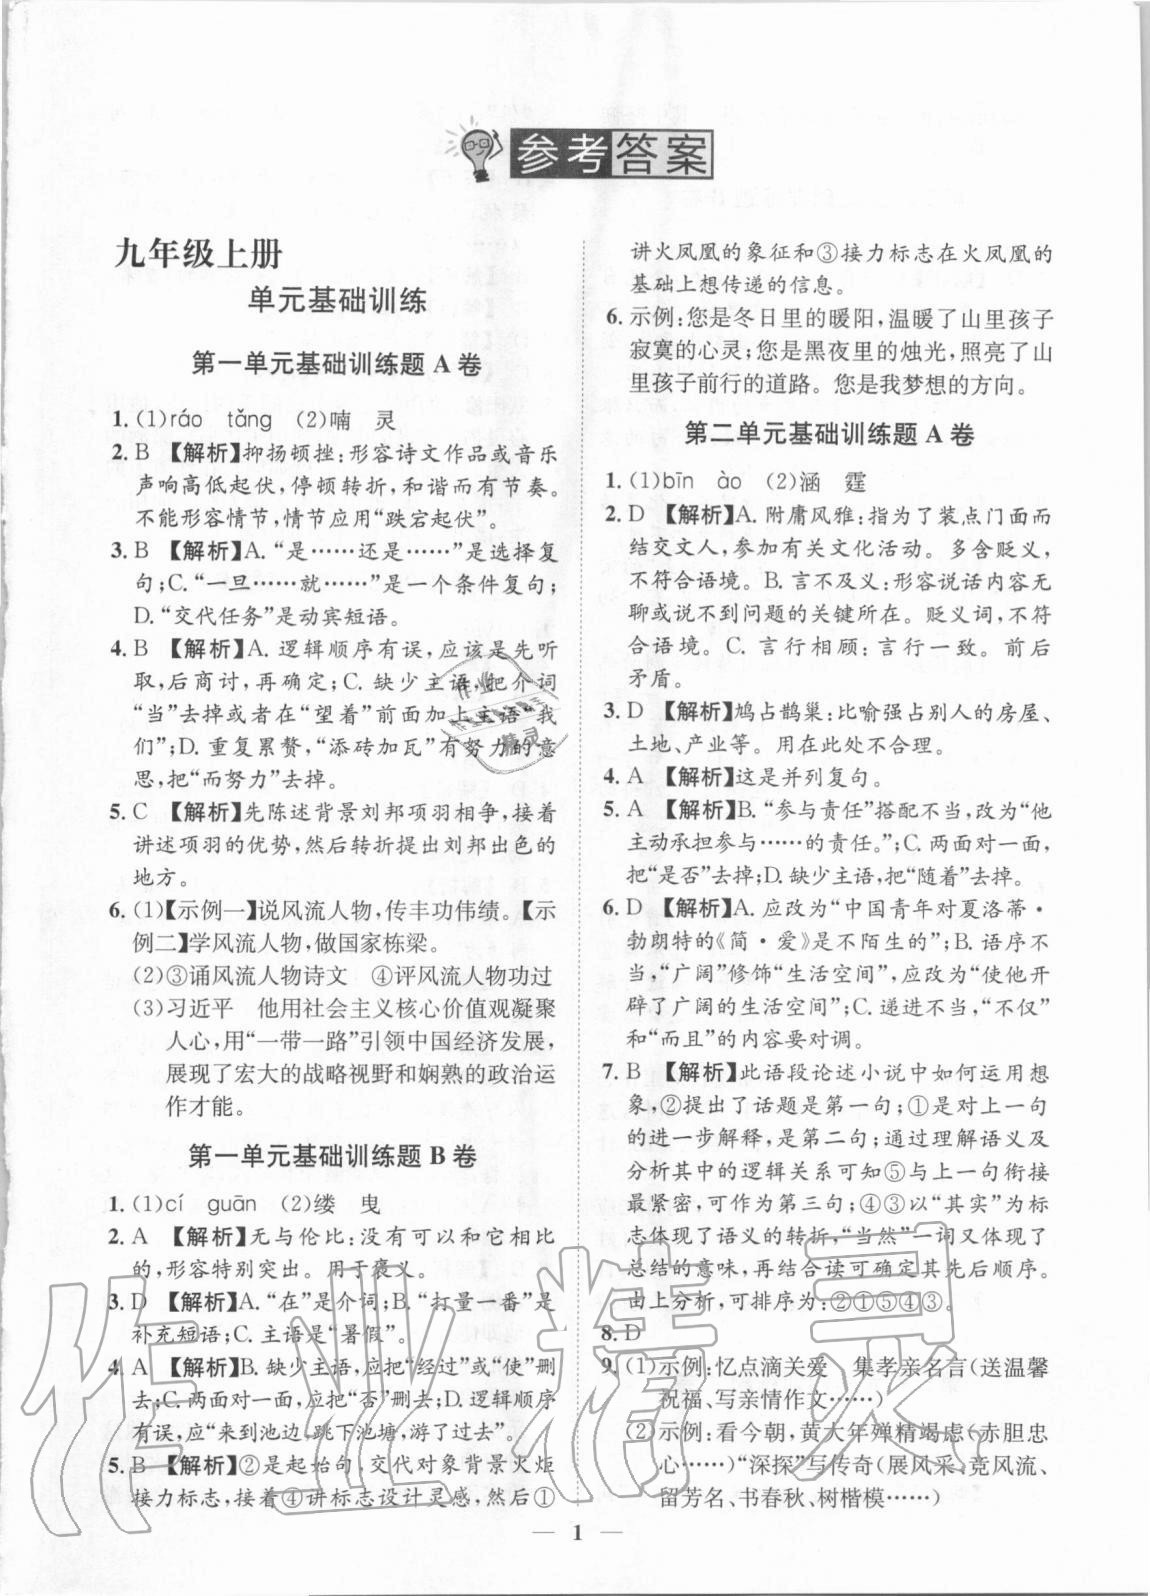 参考答案
九年级上册
单元基础训练
第一单元基础训练题 A 卷
1. (1)ráo tǎng (2)喃 灵
2. B 【解析】抑扬顿挫:形容诗文作品或音乐
声响高低起伏,停顿转折,和谐而有节奏。
不能形容情节,情节应用“跌宕起伏”。
3. B 【解析】A.“是……还是……”是选择复
句;C.“一旦……就……”是一个条件复句;
D.“交代任务”是动宾短语。
4. B 【解析】A. 逻辑顺序有误,应该是先听
取,后商讨,再确定;C. 缺少主语,把介词
“当”去掉或者在“望着”前面加上主语“我
们”;D. 重复累赘,“添砖加瓦”有努力的意
思,把“而努力”去掉。
5. C 【解析】先陈述背景刘邦项羽相争,接着
讲述项羽的优势,然后转折提出刘邦出色的
地方。
6. (1)【示例一】说风流人物,传丰功伟绩。【示
例二】学风流人物,做国家栋梁。
(2)③诵风流人物诗文 ④评风流人物功过
(3)习近平 他用社会主义核心价值观凝聚
人心,用“一带一路”引领中国经济发展,
展现了宏大的战略视野和娴熟的政治运
作才能。
第一单元基础训练题 B 卷
1. (1)cí guān (2)缕 曳
2. A 【解析】无与伦比:没有可以和它相比
的,形容特别突出。用于褒义。
3. D 【解析】A.“在”是介词;B.“打量一番”是
补充短语;C. 主语是“暑假”。
4. A 【解析】B. 缺少主语,应把“经过”或“使”删
去;C. 两面对一面,应把“能否”删去;D. 逻辑顺序
有误,应“来到池边,跳下池塘,游了过去”。
5. B 【解析】②是起始句,交代对象背景火炬
接力标志,接着④讲标志设计灵感,然后①
讲火凤凰的象征和③接力标志在火凤凰的
基础上想传递的信息。
6. 示例:您是冬日里的暖阳,温暖了山里孩子
寂寞的心灵;您是黑夜里的烛光,照亮了山
里孩子前行的道路。您是我梦想的方向。
第二单元基础训练题 A 卷
1. (1)bīn ào (2)涵 霆
2. D 【解析】A. 附庸风雅:指为了装点门面而
结交文人,参加有关文化活动。多含贬义,
不符合语境。B. 言不及义:形容说话内容无
聊或说不到问题的关键所在。贬义词,不符
合语境。C. 言行相顾:言行一致。前后
矛盾。
3. D 【解析】鸠占鹊巢:比喻强占别人的房屋、
土地、产业等。用在此处不合理。
4. A 【解析】这是并列复句。
5. A 【解析】B.“参与责任”搭配不当,改为“他
主动承担参与……的责任。”;C. 两面对一面,
把“是否”去掉;D. 缺少主语,把“随着”去掉。
6. D 【解析】A. 应改为“中国青年对夏洛蒂·
勃朗特的《简·爱》是不陌生的”;B. 语序不
当,“广阔”修饰“生活空间”,应改为“使他开
辟了广阔的生活空间”;C. 递进不当,“不仅”
和“而且”的内容要对调。
7. B 【解析】此语段论述小说中如何运用想
象,②提出了话题是第一句;①是对上一句
的进一步解释,是第二句;通过理解语义及
分析其中的逻辑关系可知⑤与上一句衔接
最紧密,可作为第三句;④③以“其实”为标
志体现了语义的转折,“当然”一词又体现了
总结的意味,再结合读可确定其先后顺序。
由上分析,可排序为:②①⑤④③。
8. D
9. (1)示例:忆点滴关爱 集孝亲名言(送温馨
祝福、写亲情作文……)
(2)示例:看今朝,黄大年殚精竭虑(赤胆忠
心……)“深探”写传奇(展风采、竞风流、
留芳名、书春秋、树楷模……)
1
作业精灵